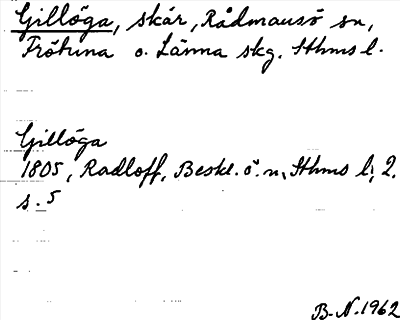 Gillöga, skär, Rådmansö sn,
Frötuna o. Länna skg. Sthms l.
Gillöga
1805, Radloff, Beskr. ö. n. Sthms l., 2.
s. 5
B-N. 1962